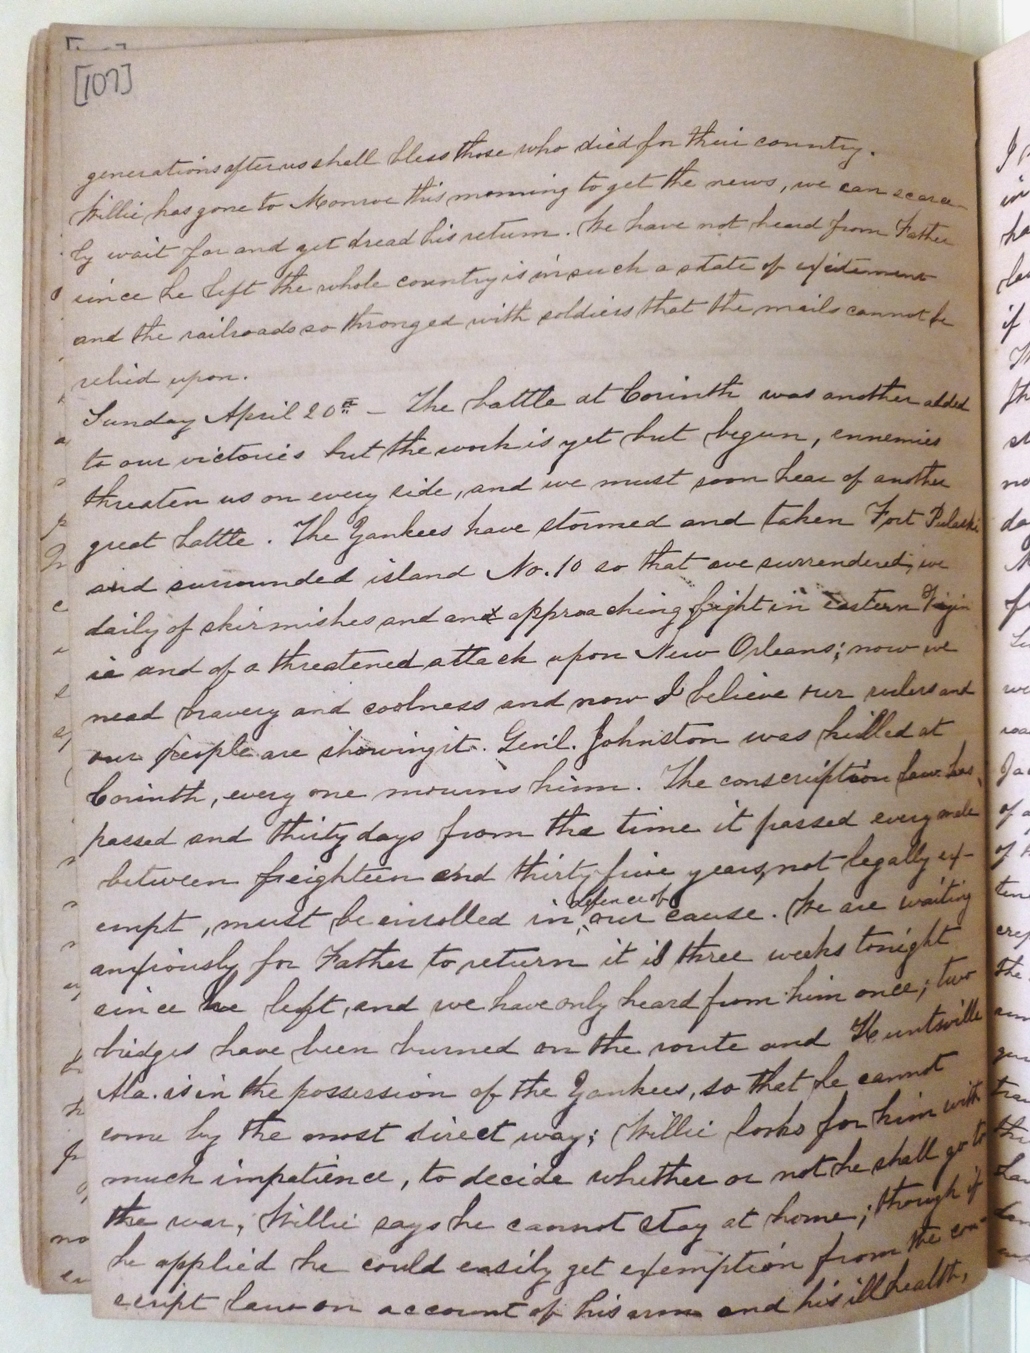 [107]
generations after us shall bless those who died for their country.
Willie has gone to Monroe this morning to get the news, we can scarce-
ly wait for and yet dread his return. We have not heard from Father
since he left the whole country is in such a state of excitement
and the railroads so thronged with soldiers that the mails cannot be
relied upon.
Sunday April 20th - The battle at Corinth was another added
to our victories but the work is yet but begun, ennemies
threaten us on every side, and we must soon hear of another
great battle. The Yankees have stormed and taken Fort Pulaski
and surrounded island No. 10 so that we surrendered; we
daily of skirmishes and and approaching fight in Eastern Virgin
ia and of a threatened attack upon New Orleans; now we
nead bravery and coolness and now I believe our rulers and
our people are showing it. Genl. Johnston was killed at
Corinth, every one mourns him. The conscription law has
passed and thirty days from the time it passed every male
between eighteen and thirty five years, not legally ex-
empt, must be enrolled in defence of our cause. We are waiting
anxiously for Father to return it is three weeks tonight
since he left, and we have only heard from him once; two
bridges have been burned on the route and Huntsville
Ala. is in the possession of the Yankees, so that he cannot
come by the most direct way; Willie looks for him with
much impatience, to decide whether or not he shall go to
the war; Willie says he cannot stay at home; though if
he applied he could easily get exemption from the con-
script law on account of his arm and his ill health,